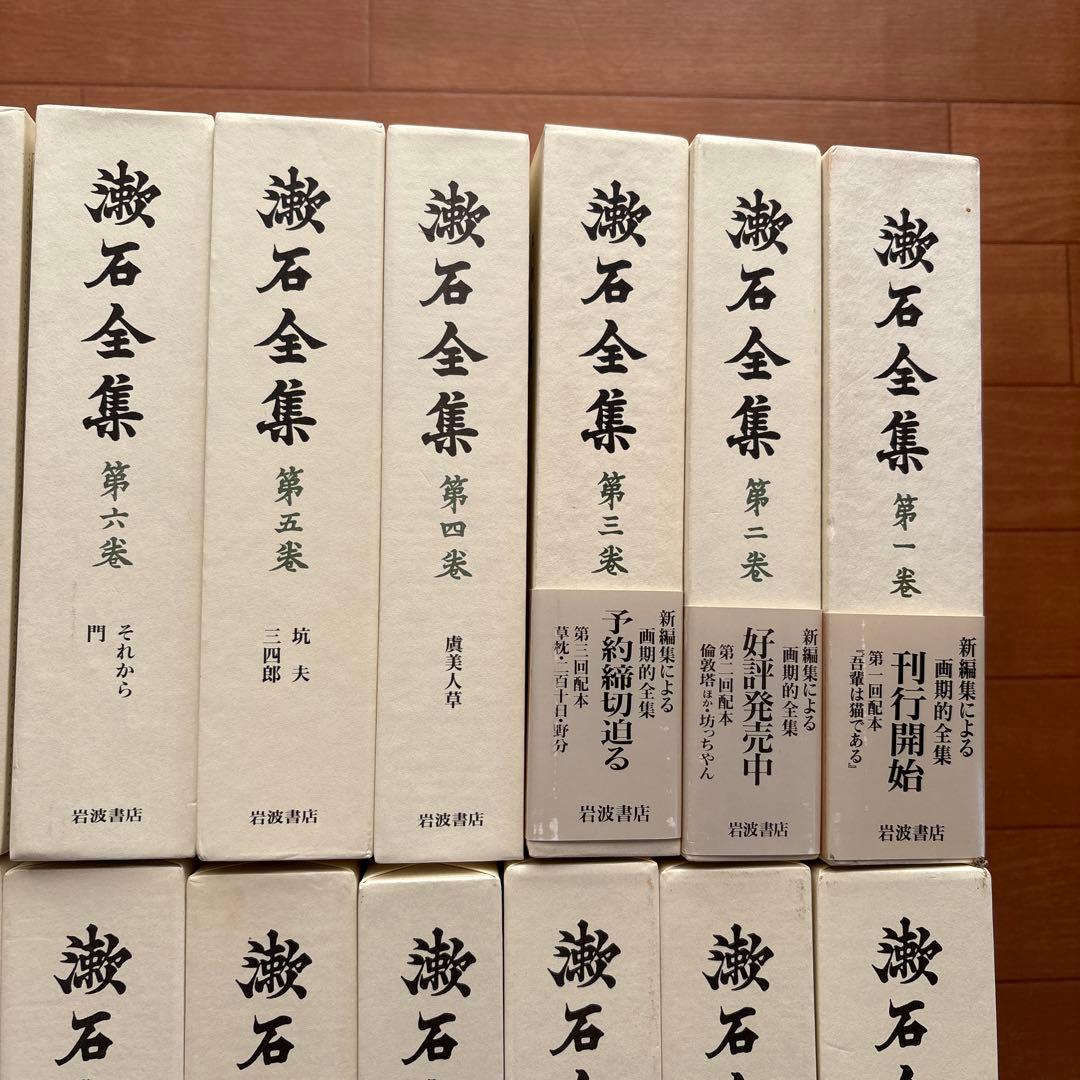 漱石全集
第一巻
新編集による
画期的全集
刊行開始
第一回配本
『吾輩は猫である』
岩波書店
漱石全集
第二巻
新編集による
画期的全集
好評発売中
第二回配本
倫敦塔ほか・坊っちやん
岩波書店
漱石全集
第三巻
新編集による
画期的全集
予約締切迫る
第三回配本
草枕・二百十日・野分
岩波書店
漱石全集
第四巻
虞美人草
岩波書店
漱石全集
第五巻
坑夫
三四郎
岩波書店
漱石全集
第六巻
それから
門
岩波書店
漱石全
漱石
漱石
漱石
漱石
漱石